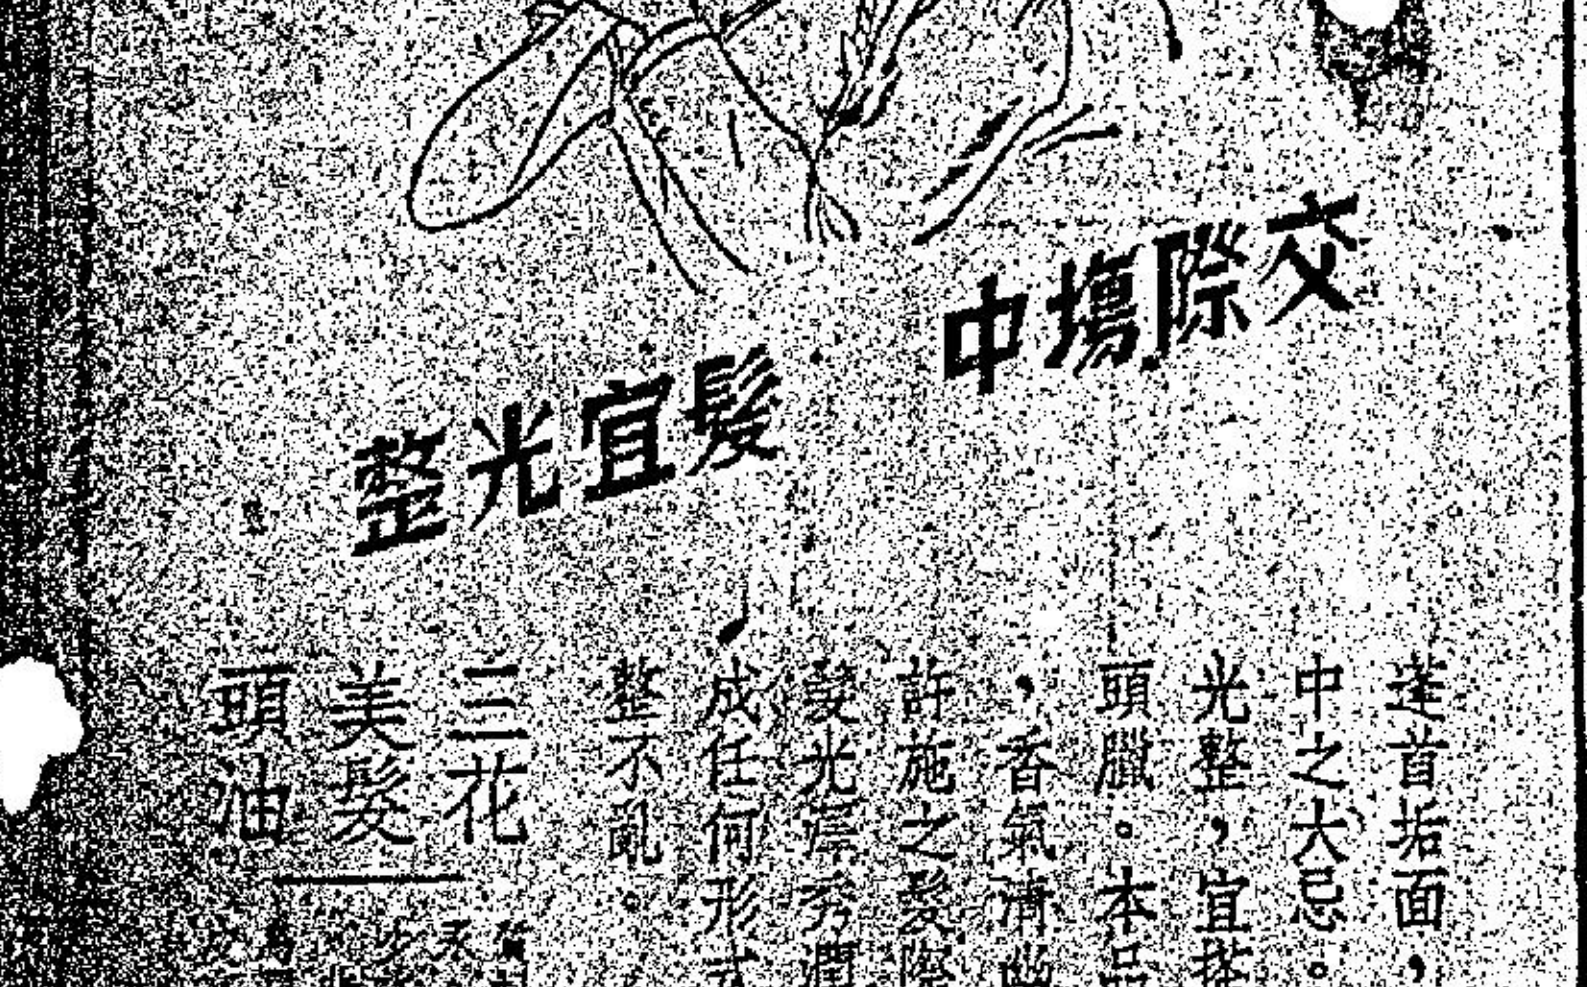 交際塲中
髮宜光整
蓬首垢面，
中之大忌。
光整，宜搽
頭臘。本品
，香氣清幽
許施之髮際
髮光厚秀潤
成任何形式
整不亂。
三花
美髮
頭油